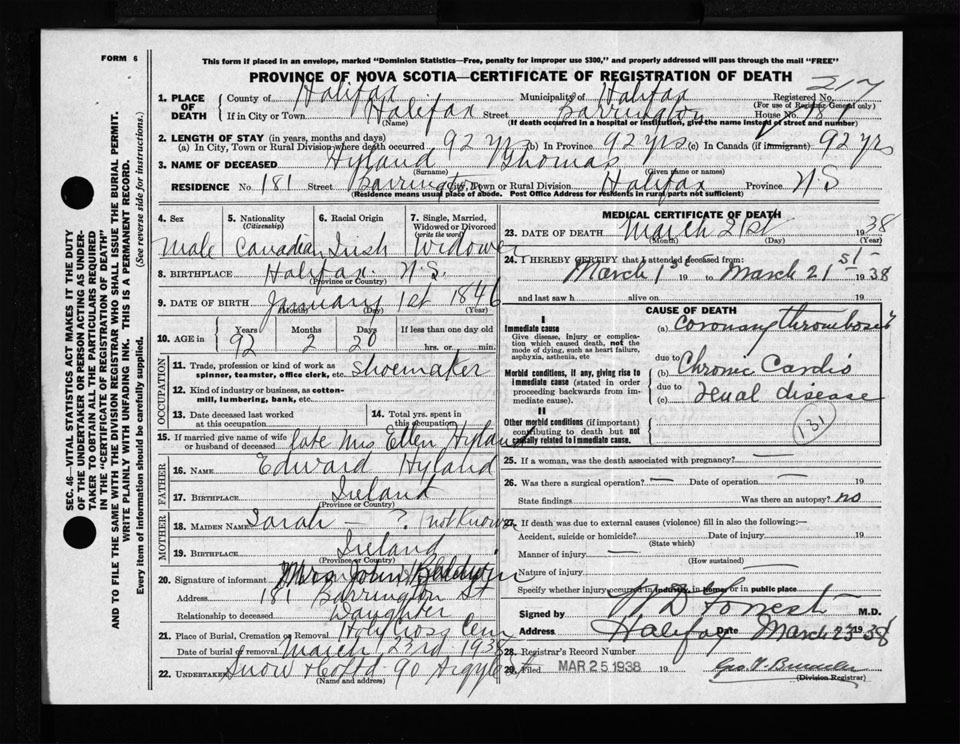 FORM 6
This form if placed in an envelope, marked "Dominion Statistics—Free, penalty for improper use $300," and properly addressed will pass through the mail "FREE"
PROVINCE OF NOVA SCOTIA—CERTIFICATE OF REGISTRATION OF DEATH
217
1. PLACE OF DEATH
County of Halifax Municipality of Halifax Registered No.
(For use of Registrar General only)
If in City or Town Halifax Street Barrington House No. 181
(Name) (If death occurred in a hospital or institution, give the name instead of street and number)
2. LENGTH OF STAY (in years, months and days)
(a) In City, Town or Rural Division where death occurred 92 yrs (b) In Province 92 yrs (c) In Canada (if immigrant) 92 yrs
3. NAME OF DECEASED Hyland Thomas
(Surname) (Given name or names)
RESIDENCE No. 181 Street Barrington City, Town or Rural Division Halifax Province N-S
(Residence means usual place of abode. Post Office Address for residents in rural parts not sufficient)
4. Sex 5. Nationality (Citizenship) 6. Racial Origin 7. Single, Married, Widowed or Divorced (write the word)
Male Canadian Irish Widower
8. BIRTHPLACE Halifax. N.S.
(Province or Country)
9. DATE OF BIRTH January 1st 1846
(Month) (Day) (Year)
10. AGE in Years Months Days If less than one day old
92 2 20 hrs. or min.
OCCUPATION
11. Trade, profession or kind of work as spinner, teamster, office clerk, etc. Shoemaker
12. Kind of industry or business, as cotton-mill, lumbering, bank, etc.
13. Date deceased last worked at this occupation 14. Total yrs. spent in this occupation
15. If married give name of wife or husband of deceased late Mrs Ellen Hyland
FATHER
16. NAME Edward Hyland
17. BIRTHPLACE Ireland
(Province or Country)
MOTHER
18. MAIDEN NAME Sarah — ? (not known)
19. BIRTHPLACE Ireland
(Province or Country)
20. Signature of informant Mrs. John Baldwin
Address 181 Barrington St
Relationship to deceased Daughter
21. Place of Burial, Cremation or Removal Holy Cross Cem
Date of burial or removal March 23rd 1938
22. UNDERTAKER Snow & Co Ltd 90 Argyle St
(Name and address)
MEDICAL CERTIFICATE OF DEATH
23. DATE OF DEATH March 21st 1938
(Month) (Day) (Year)
24. I HEREBY CERTIFY that I attended deceased from:
March 1st 19 to March 21st 1938
and last saw h alive on 19
CAUSE OF DEATH
I
Immediate cause
Give disease, injury or complication which caused death, not the mode of dying, such as heart failure, asphyxia, asthenia, etc
(a) Coronary thrombosis
due to
Morbid conditions, if any, giving rise to immediate cause (stated in order proceeding backwards from immediate cause).
(b) Chronic Cardio
due to
(c) renal disease
II
Other morbid conditions (if important) contributing to death but not causally related to immediate cause.
131
25. If a woman, was the death associated with pregnancy? —
26. Was there a surgical operation? — Date of operation — 19
State findings Was there an autopsy? no
27. If death was due to external causes (violence) fill in also the following:—
Accident, suicide or homicide? Date of injury 19
(State which)
Manner of injury —
(How sustained)
Nature of injury —
Specify whether injury occurred in industry, in home, or in public place
Signed by W D Forrest M.D.
Address Halifax Date March 23 1938
28. Registrar's Record Number
29. Filed MAR 25 1938 19
(Division Registrar)
SEC. 46—VITAL STATISTICS ACT MAKES IT THE DUTY
OF THE UNDERTAKER OR PERSON ACTING AS UNDER-
TAKER TO OBTAIN ALL THE PARTICULARS REQUIRED
IN THE "CERTIFICATE OF DEATH"
AND TO FILE THE SAME WITH THE DIVISION REGISTRAR WHO SHALL ISSUE THE BURIAL PERMIT.
WRITE PLAINLY WITH UNFADING INK. THIS IS A PERMANENT RECORD.
Every item of information should be carefully supplied. (See reverse side for instructions.)